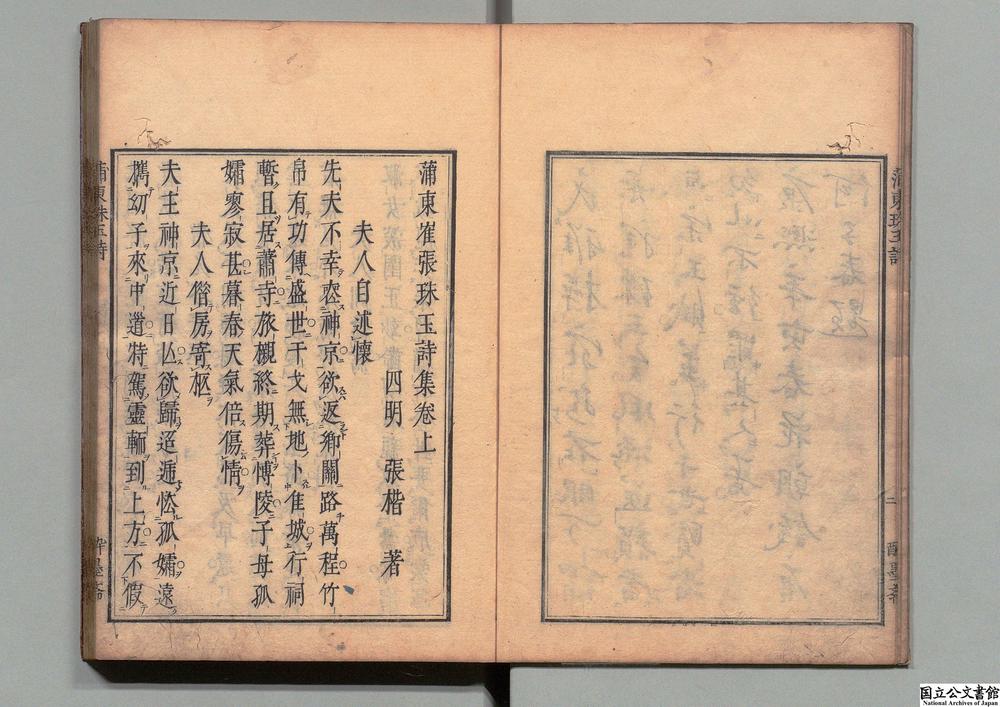 蒲東珠玉詩 二 醉墨斎
蒲東崔張珠玉詩集卷上
四明 張楷 著
夫人自述懷
先夫不幸喪神京欲返鄉關路萬程竹
帛有功傳盛世干戈無地卜隹城行祠
暫且居蕭寺旅櫬終期葬博陵子母孤
孀寥寂甚暮春天氣倍傷情
夫人僧房寄柩
夫主神京近日亾欲歸迢遞孤孀遠
携幼子來中道特駕靈輀到上方不假
蒲東珠玉詩 醉墨斎
国立公文書館
National Archives of Japan